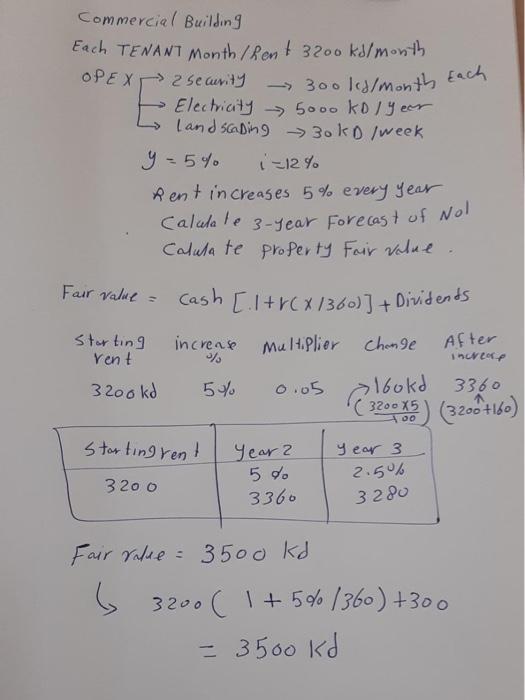 Commercial Building
Each TENANT Month/Rent 3200 kd/month
OPEX → 2 security → 300 kd/month Each
→ Electricity → 5000 KD/year
→ landscabing → 30 KD /week
y = 5% i = 12%
Rent increases 5% every year
Calculate 3-year Forecast of NoI
Calculate property Fair value.
Fair value = cash [.1+r(x/360)] + Dividends
Starting rent increase % Multiplier change After increase
3200 kd 5% 0.05 → 160kd 3360
(3200x5/100) (3200+160)
Starting rent Year 2 Year 3
5% 2.5%
3200 3360 3280
Fair value = 3500 kd
↳ 3200 ( 1 + 5% /360) +300
= 3500 kd